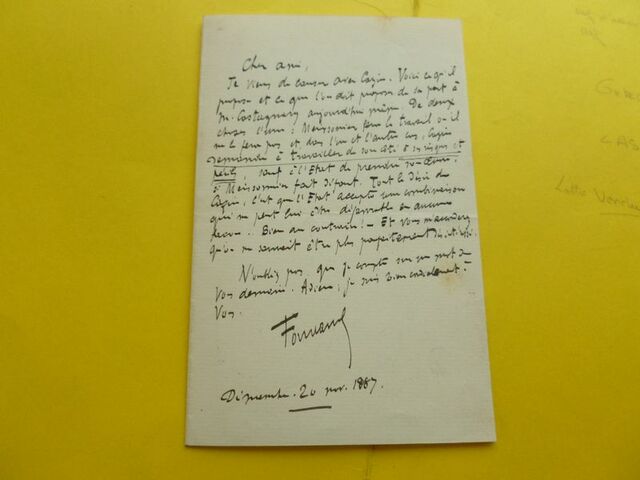 Cher ami,
Je viens de causer avec Cazin. Voici ce qu'il
propose et ce que l'on doit proposer de sa part à
M. Castagnary aujourd'hui même. De deux
choses l'une : Meissonier fera le travail ou il
ne le fera pas et dans l'un et l'autre cas, Cazin
demande à travailler de son côté à ses risques et
périls, sauf à l'Etat de prendre son œuvre
si Meissonnier fait défaut. Tout le désir de
Cazin, c'est que l'Etat accepte une combinaison
qui ne peut lui être défavorable en aucune
façon. Bien au contraire ! — Et vous m'accorderez
qu'on ne saurait être plus parfaitement
N'oubliez pas que je compte sur un mot de
vous demain. Adieu, je suis bien cordialement à
vous.
Dimanche. 20 nov. 1887.